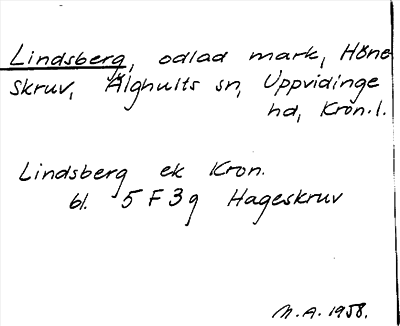 Lindsberg, odlad mark, Höne
skruv, Älghults sn, Uppvidinge
hd, Kron.l.
Lindsberg ek Kron.
bl. 5 F 3 g Hageskruv
M.A. 1958.